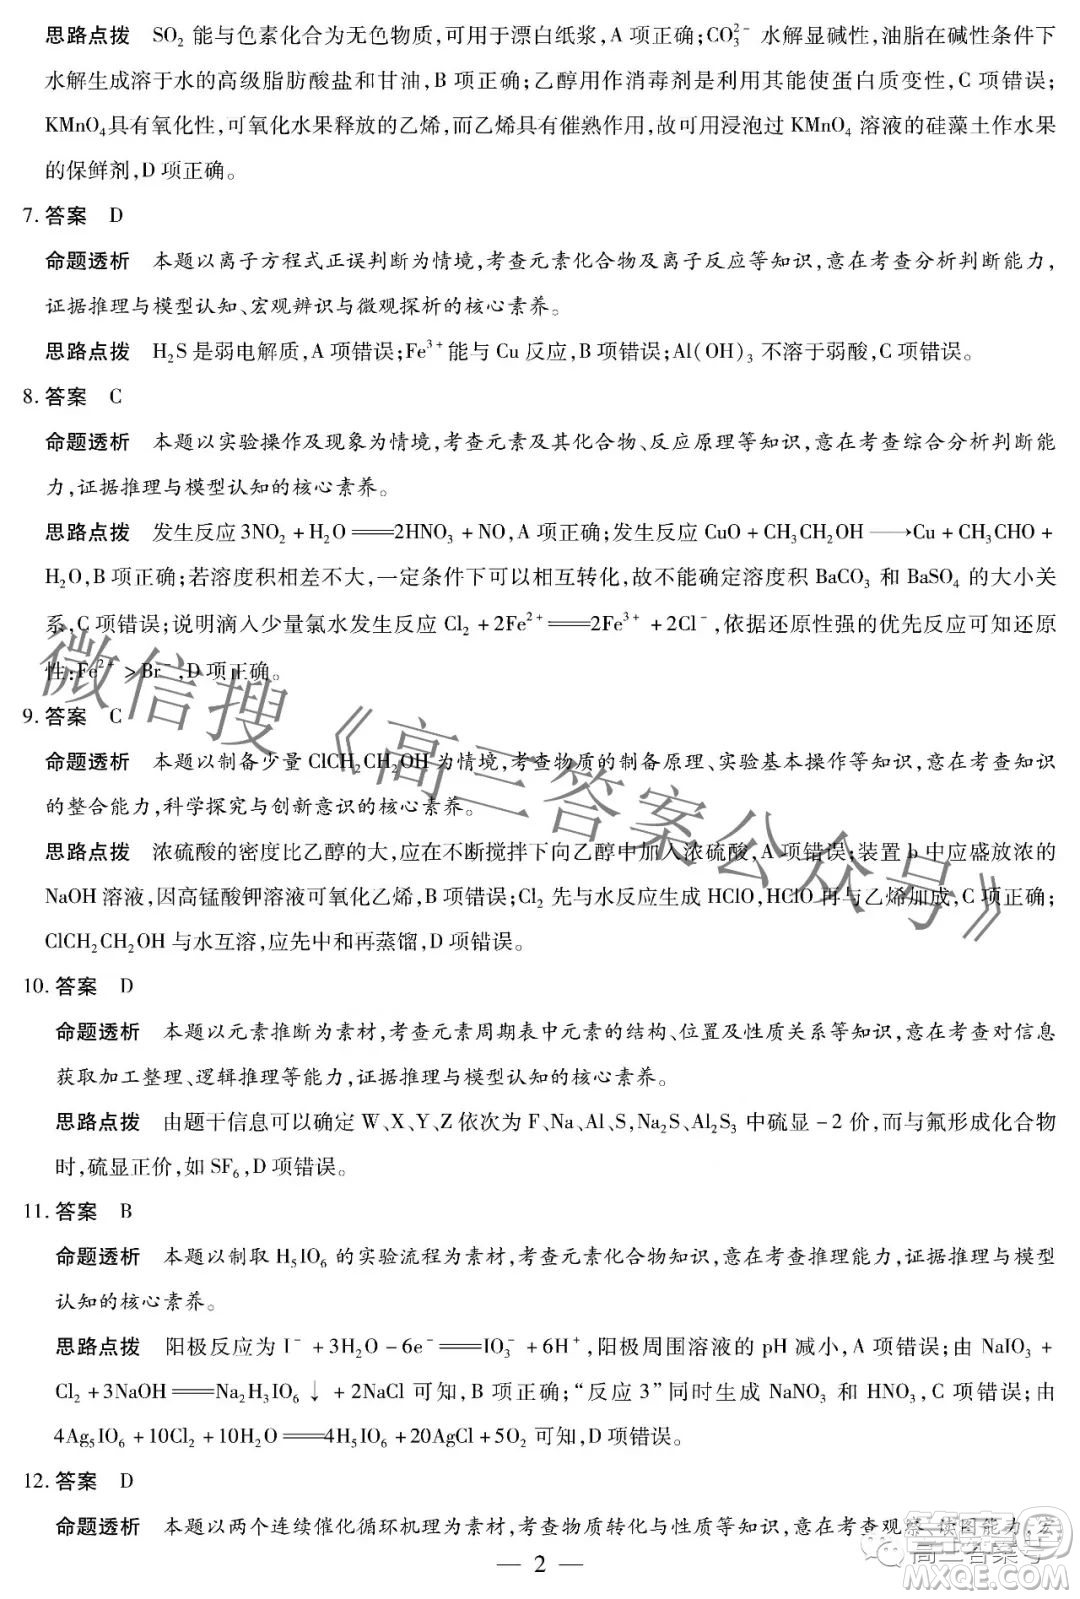 思路点拨 SO₂ 能与色素化合为无色物质,可用于漂白纸浆,A 项正确;CO₃²⁻ 水解显碱性,油脂在碱性条件下
水解生成溶于水的高级脂肪酸盐和甘油,B 项正确;乙醇用作消毒剂是利用其能使蛋白质变性,C 项错误;
KMnO₄具有氧化性,可氧化水果释放的乙烯,而乙烯具有催熟作用,故可用浸泡过 KMnO₄ 溶液的硅藻土作水果
的保鲜剂,D 项正确。
7. 答案 D
命题透析 本题以离子方程式正误判断为情境,考查元素化合物及离子反应等知识,意在考查分析判断能力,
证据推理与模型认知、宏观辨识与微观探析的核心素养。
思路点拨 H₂S 是弱电解质,A 项错误;Fe³⁺能与 Cu 反应,B 项错误;Al(OH)₃ 不溶于弱酸,C 项错误。
8. 答案 C
命题透析 本题以实验操作及现象为情境,考查元素及其化合物、反应原理等知识,意在考查综合分析判断能
力,证据推理与模型认知的核心素养。
思路点拨 发生反应3NO₂+H₂O══2HNO₃+NO,A 项正确;发生反应 CuO+CH₃CH₂OH⟶Cu+CH₃CHO+
H₂O,B 项正确;若溶度积相差不大,一定条件下可以相互转化,故不能确定溶度积 BaCO₃ 和 BaSO₄ 的大小关
系,C 项错误;说明滴入少量氯水发生反应 Cl₂+2Fe²⁺══2Fe³⁺+2Cl⁻,依据还原性强的优先反应可知还原
性:Fe²⁺>Br⁻,D 项正确。
9. 答案 C
命题透析 本题以制备少量 ClCH₂CH₂OH 为情境,考查物质的制备原理、实验基本操作等知识,意在考查知识
的整合能力,科学探究与创新意识的核心素养。
思路点拨 浓硫酸的密度比乙醇的大,应在不断搅拌下向乙醇中加入浓硫酸,A 项错误;装置 b 中应盛放浓的
NaOH 溶液,因高锰酸钾溶液可氧化乙烯,B 项错误;Cl₂ 先与水反应生成 HClO,HClO 再与乙烯加成,C 项正确;
ClCH₂CH₂OH 与水互溶,应先中和再蒸馏,D 项错误。
10. 答案 D
命题透析 本题以元素推断为素材,考查元素周期表中元素的结构、位置及性质关系等知识,意在考查对信息
获取加工整理、逻辑推理等能力,证据推理与模型认知的核心素养。
思路点拨 由题干信息可以确定 W、X、Y、Z 依次为 F、Na、Al、S,Na₂S、Al₂S₃ 中硫显 -2 价,而与氟形成化合物
时,硫显正价,如 SF₆,D 项错误。
11. 答案 B
命题透析 本题以制取 H₅IO₆ 的实验流程为素材,考查元素化合物知识,意在考查推理能力,证据推理与模型
认知的核心素养。
思路点拨 阳极反应为 I⁻+3H₂O-6e⁻══IO₃⁻+6H⁺,阳极周围溶液的 pH 减小,A 项错误;由 NaIO₃+
Cl₂+3NaOH══Na₂H₃IO₆↓+2NaCl 可知,B 项正确;“反应 3”同时生成 NaNO₃ 和 HNO₃,C 项错误;由
4Ag₅IO₆+10Cl₂+10H₂O══4H₅IO₆+20AgCl+5O₂ 可知,D 项错误。
12. 答案 D
命题透析 本题以两个连续催化循环机理为素材,考查物质转化与性质等知识,意在考查观察 读图能力,宏
— 2 —
微信搜《高三答案公众号》
高三答案号
答案圈
MXQE.COM